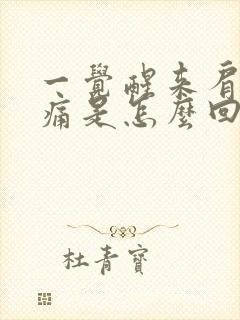 一覺醒来肩
痛是怎麼回
杜青寶